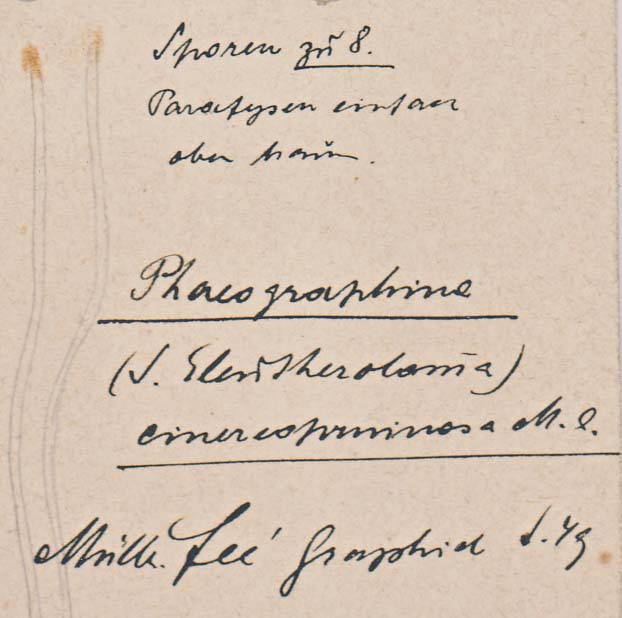 Sporen zu 8.
Parafysen einfach
oben braun.
Phaeographina
(S. Eleutheroloma)
cinereopruinosa M. e.
Müll. Feé Graphid S. 49